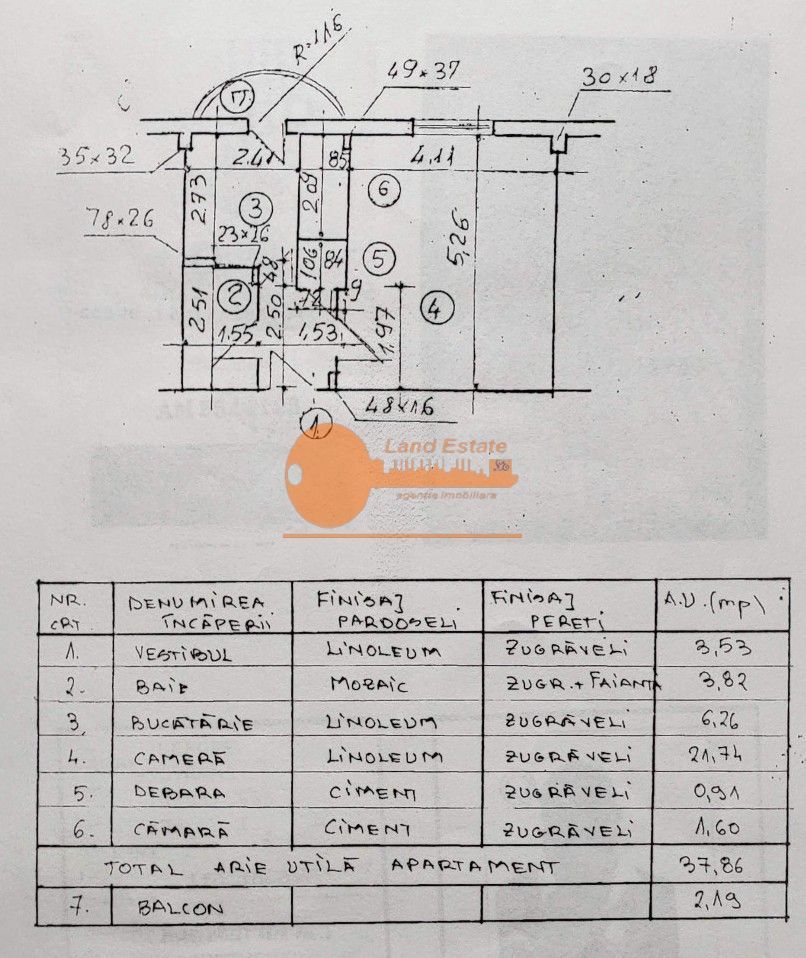 R=1,16
7
49×37
30×18
35×32
2.41
85
4,11
2.73
3
2.09
6
5,26
78×26
23×26
48
106
84
5
2
2.51
72
9
4
2.50
1,97
1.55
1,53
48×16
1
Land Estate
agentie imobiliara
NR. CRT. DENUMIREA ÎNCĂPERII FINISAJ PARDOSELI FINISAJ PEREȚI A.U.(mp)
1. VESTIBUL LINOLEUM ZUGRĂVELI 3,53
2. BAIE MOZAIC ZUGR.+FAIANȚĂ 3,82
3. BUCĂTĂRIE LINOLEUM ZUGRĂVELI 6,26
4. CAMERĂ LINOLEUM ZUGRĂVELI 21,74
5. DEBARA CIMENT ZUGRĂVELI 0,91
6. CĂMARĂ CIMENT ZUGRĂVELI 1,60
TOTAL ARIE UTILĂ APARTAMENT 37,86
7. BALCON 2,19